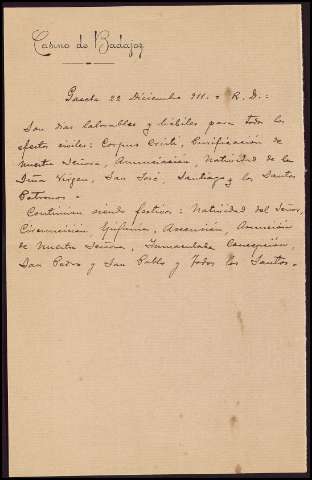 Casino de Badajoz
Gaceta 22 Diciembre 911. = R. D.:
Son dias laborables y hábiles para todos los
efectos civiles: Corpus Cristi, Purificación de
Nuestra Señora, Anunciación, Natividad de la
Virgen, San José, Santiago y los Santos
Patronos.
Continúan siendo festivos: Natividad del Señor,
Circuncisión, Epifanía, Ascensión, Asunción
de Nuestra Señora, Inmaculada Concepción,
San Pedro y San Pablo y Todos los Santos.